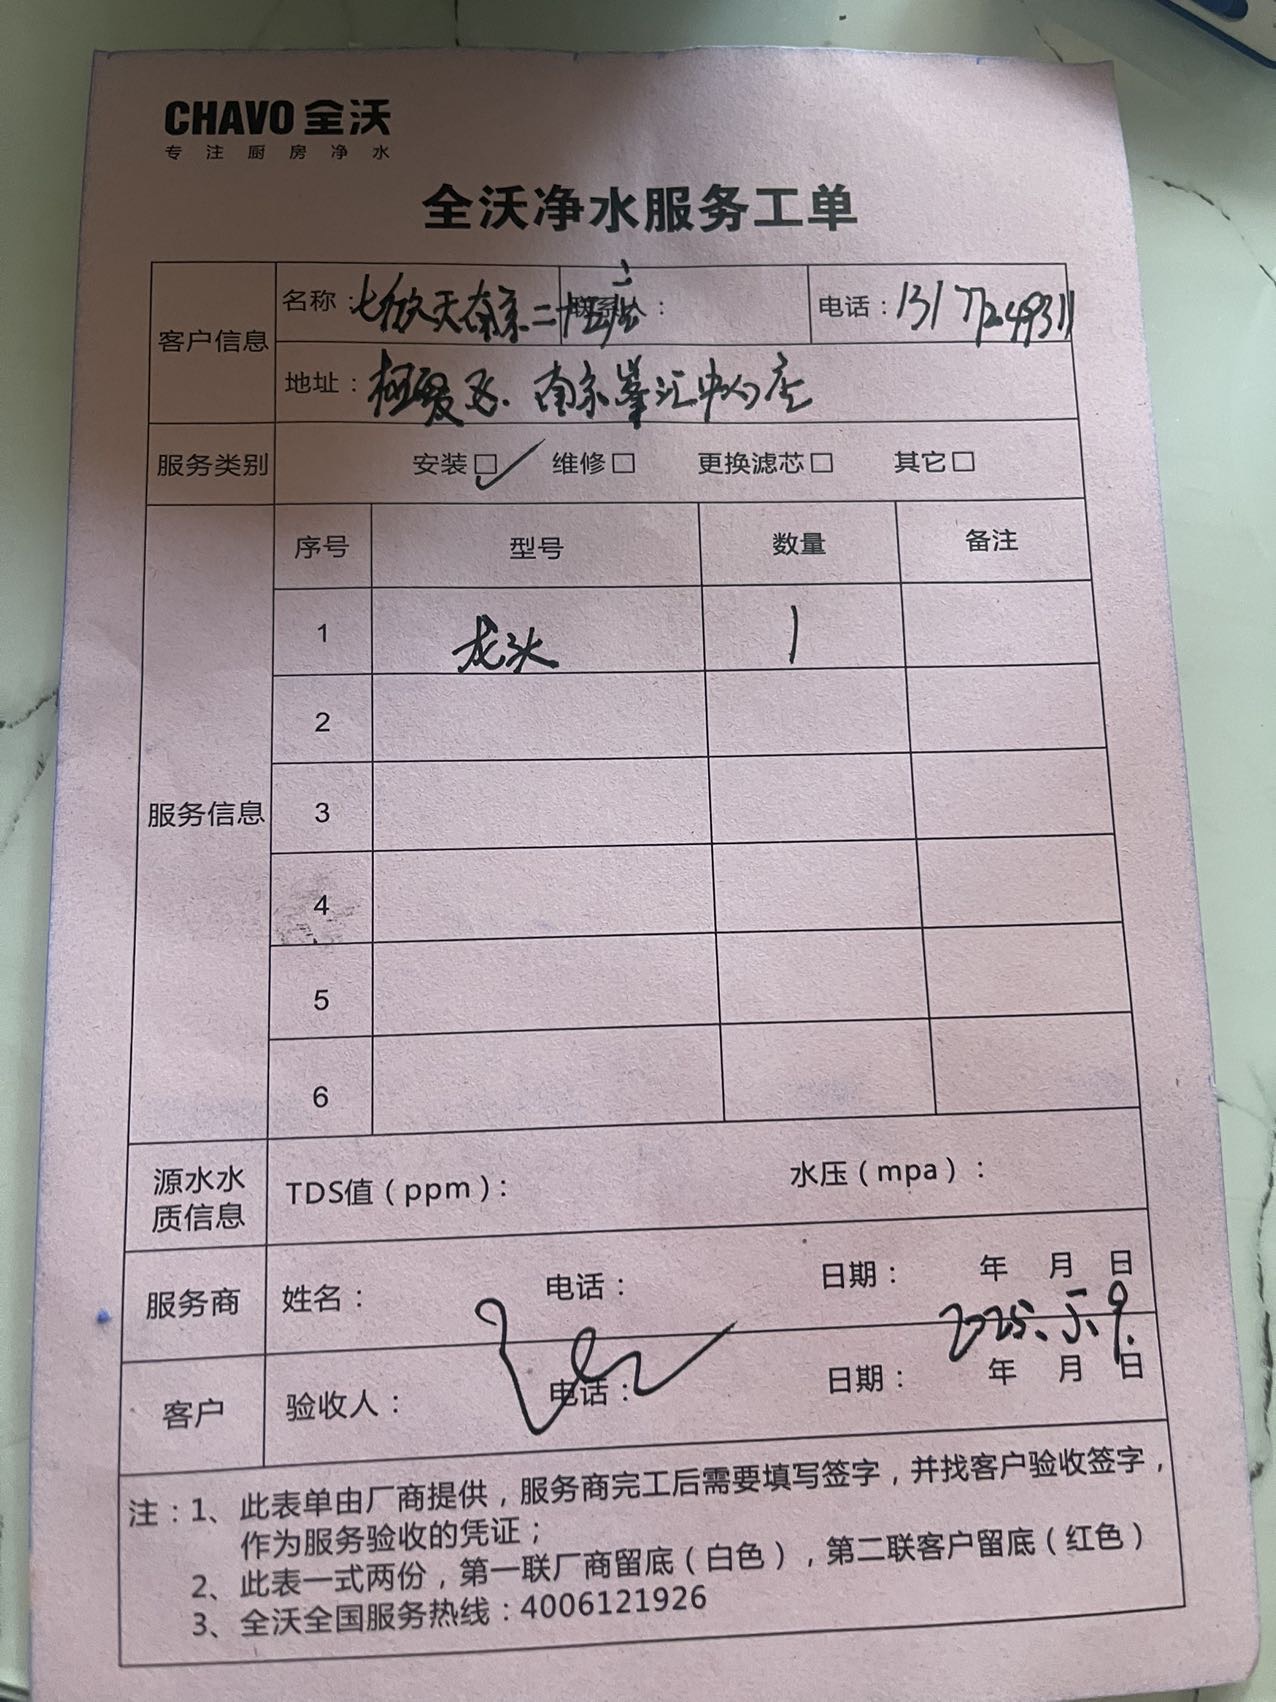 CHAVO 全沃
专注厨房净水
全沃净水服务工单
客户信息
名称： 七欣天南京二十 联系人： 电话：
地址： 南京 汇中心店
服务类别 安装□✓ 维修□ 更换滤芯□ 其它□
服务信息
序号 型号 数量 备注
1 龙头 1
2
3
4
5
6
源水水质信息 TDS值（ppm）： 水压（mpa）：
服务商 姓名： 电话： 日期： 年 月 日
2025.5.9.
客户 验收人： 电话： 日期： 年 月 日
注：1、此表单由厂商提供，服务商完工后需要填写签字，并找客户验收签字，
作为服务验收的凭证；
2、此表一式两份，第一联厂商留底（白色），第二联客户留底（红色）
3、全沃全国服务热线：4006121926